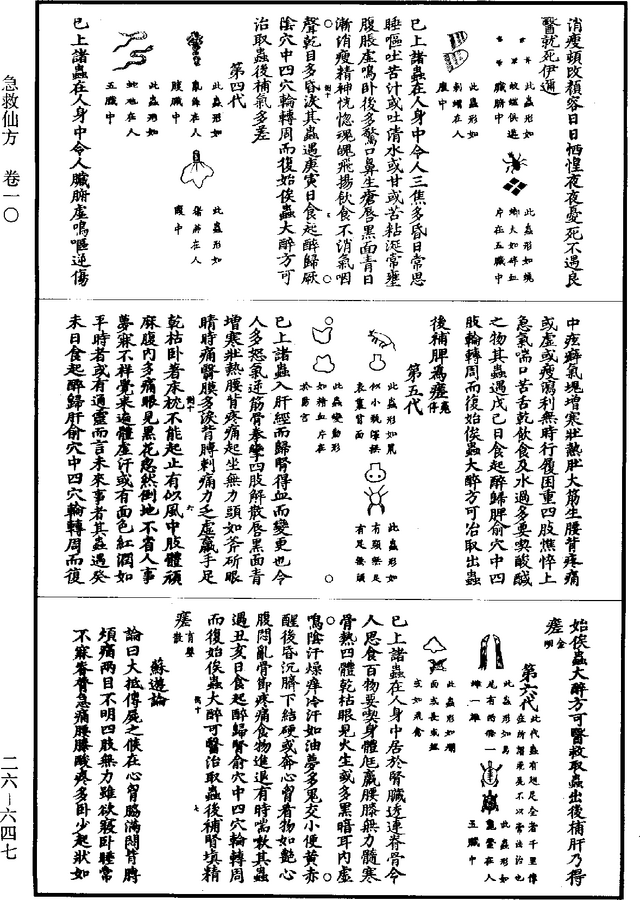 急救仙方　卷一〇
消瘦頓改顏容日日恓惶夜夜憂死不遇良
醫就死伊邇
此蟲形如
蚊蟻俱遊
臟腑中
此蟲形如蜣
蜋大如碎血
片在五臟中
此蟲形如
刺蝟在人
腹中
已上諸蟲在人身中令人三焦多昏日常思
睡嘔吐苦汁或吐清水或甘或苦粘涎常壅
腹脹虛鳴卧後多驚口鼻生瘡唇黑面青日
漸消瘦精神恍惚魂魄飛揚飲食不消氣咽
聲乾目多昏淚其蟲遇庚寅日食起醉歸厥
陰穴中四穴輪轉周而復始俟蟲大醉方可
治取蟲後補氣多差
第四代
此蟲形如
亂絲在人
腹臟中
此蟲形如
在人
腹中
此蟲形如
蛇虺在人
五臟中
已上諸蟲在人身中令人臟腑虛鳴嘔逆傷
中痃癖氣塊增寒壯熱肚大筋生腰背疼痛
或虛或瘦瀉利無時行履困重四肢憔悴上
急氣喘口苦舌乾飲食及水過多要喫酸鹹
之物其蟲遇戊己日食起醉歸脾俞穴中四
肢輪轉周而復始俟蟲大醉方可治取出蟲
後補脾焉瘥
第五代
此蟲形如鼠
似小瓶渾挾
表裏背面
此蟲形如
有頭無足
有足無頭
此蟲變動形
如精血片在
於陽宮
已上諸蟲入肝經而歸腎得血而變更也令
人多怒氣逆筋骨拳攣四肢解散唇黑面青
增寒壯熱腰背疼痛起坐無力頭如斧斫眼
睛時痛翳膜多淚背膊刺痛力乏虛羸手足
乾枯卧著床枕不能起止有似風中肢體頑
麻腹內多痛眼見黑花忽然倒地不省人事
夢寐不祥覺來遍體虛汗或有面色紅潤如
平時者或有通靈而言未來事者其蟲遇癸
未日食起醉歸肝俞穴中四穴輪轉周而復
始俟蟲大醉方可醫救取蟲出後補肝乃得
瘥
第六代
此代蟲有翅足全者千里傳
在所謂飛是不以常法治也
此蟲形如馬
尾有兩條一
雄一雌
此蟲形如
龜鱉在人
五臟中
此蟲形如爛
面或長或短
或如飛禽
已上諸蟲在人身中居於腎臟透連脊骨令
人思食百物要喫身體尫羸腰膝無力髓寒
骨熱四體乾枯眼見火生或多黑暗耳內虛
鳴陰汗燥痒冷汗如油夢多鬼交小便黃赤
醒後昏沉臍下結硬或奔心胷看物如艷心
腹悶亂骨節疼痛食物進退有時喘嗽其蟲
遇丑亥日食起醉歸腎俞穴中四穴輪轉周
而復始俟蟲大醉可醫治取蟲後補腎填精
瘥
蘇遊論
論曰大抵傳屍之候在心胷膈滿悶背膊
煩痛兩目不明四肢無力雖欲寢卧睡常
不寐脊膂急痛腰膝酸疼多卧少起狀如
二六—六四七